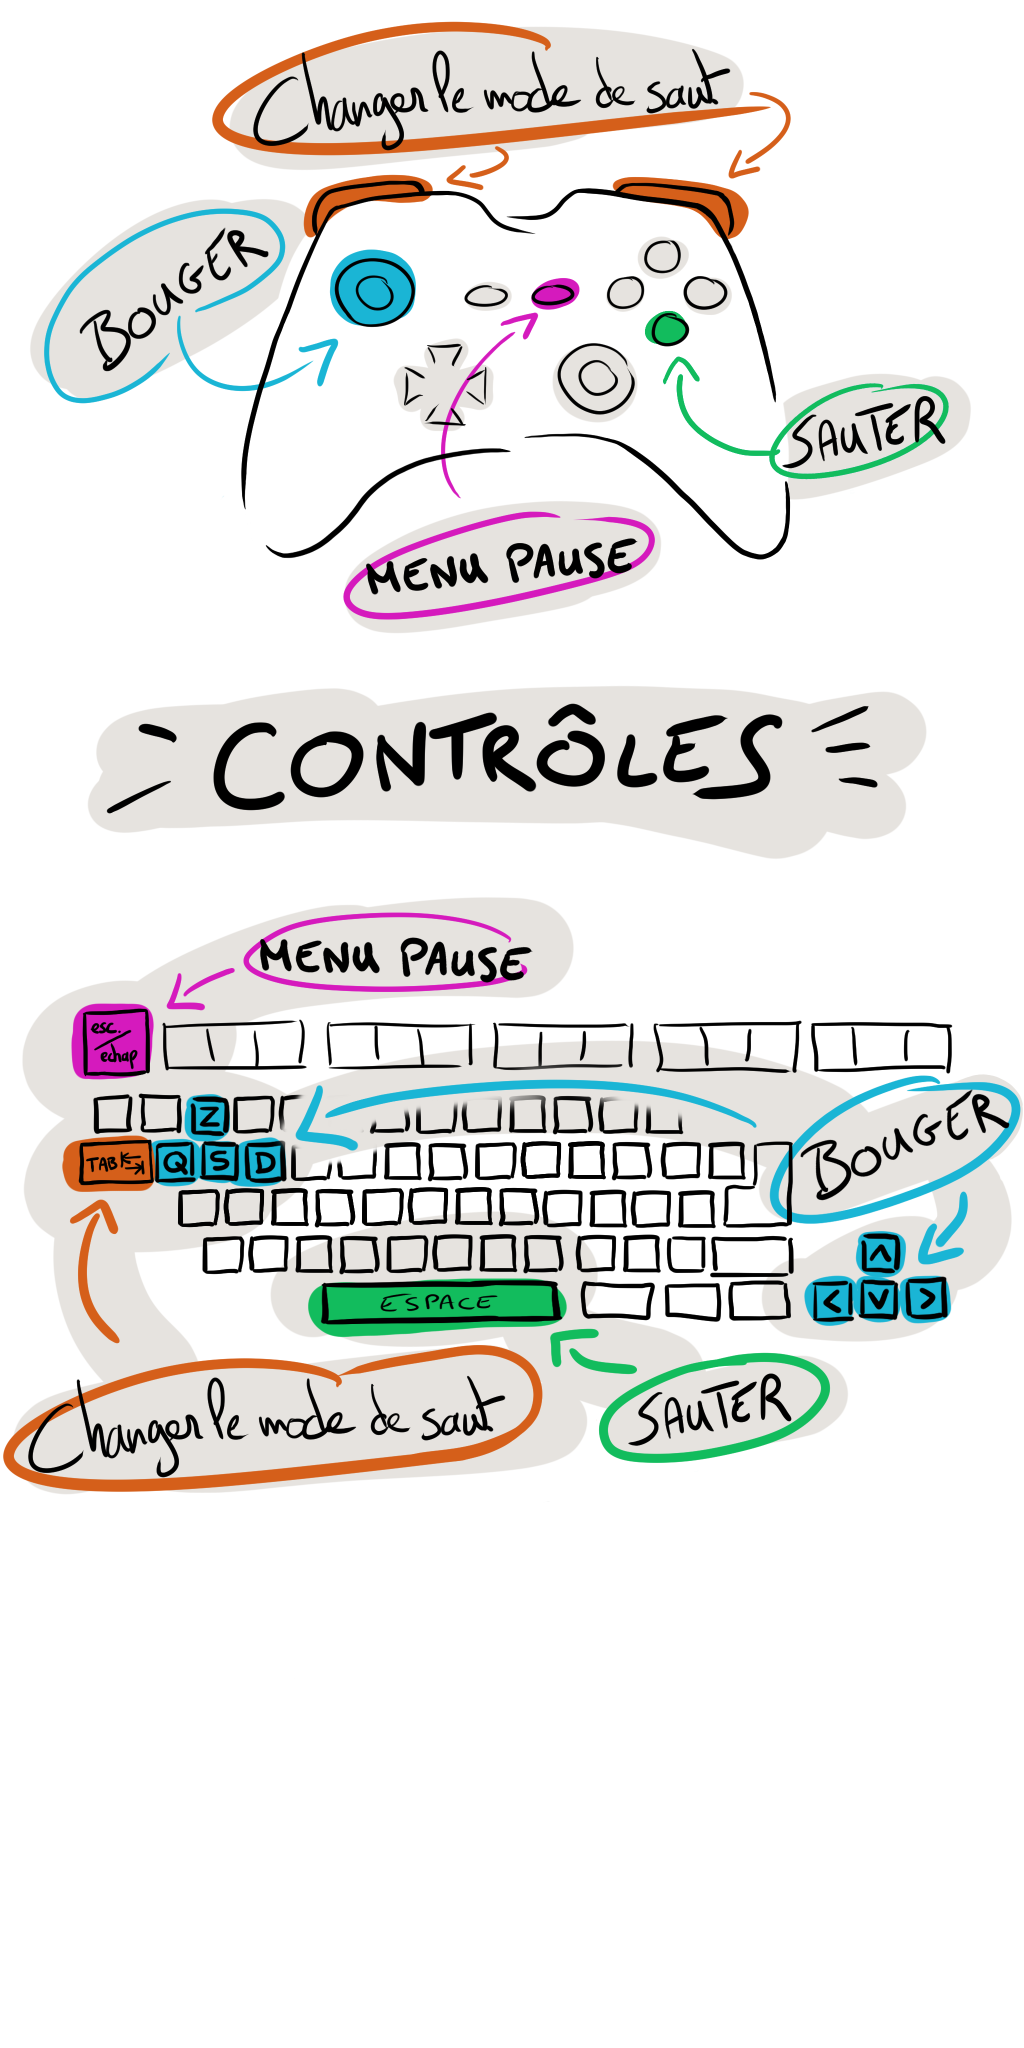 Changer le mode de saut
BOUGER
SAUTER
MENU PAUSE
CONTRÔLES
MENU PAUSE
esc. / echap
Z
BOUGER
TAB Q S D
^
ESPACE
< v >
Changer le mode de saut
SAUTER